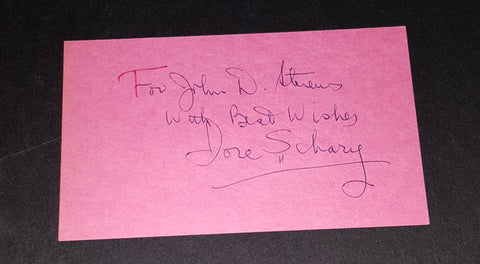 For John D. Stevens
With Best Wishes
Dore Schary